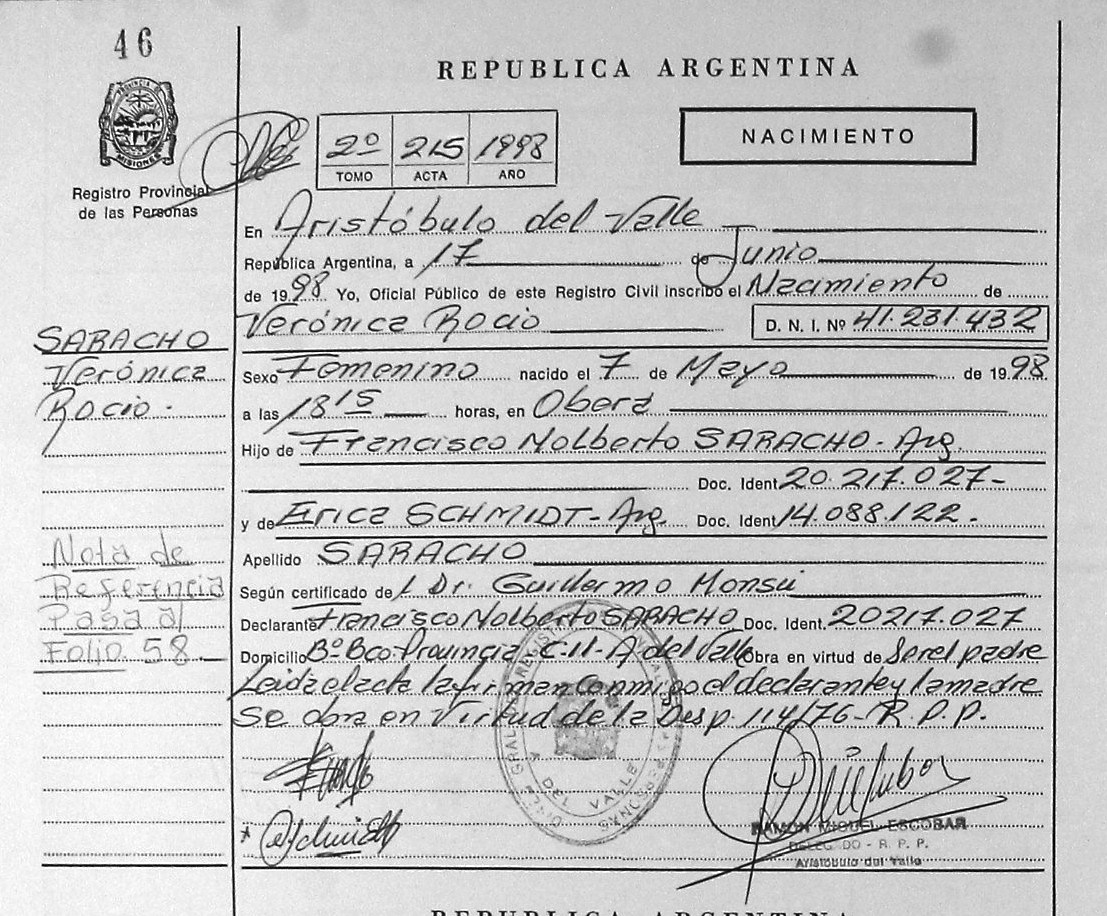 46
REPUBLICA ARGENTINA
PROVINCIA DE
MISIONES
NACIMIENTO
2º 215 1998
TOMO ACTA AÑO
Registro Provincial
de las Personas
En Aristóbulo del Valle
República Argentina, a 17 de Junio
de 1998 Yo, Oficial Público de este Registro Civil inscribo el Nacimiento de
Verónica Rocio D. N. I. Nº 41.231.432
SARACHO
Verónica
Rocio.
Sexo Femenino nacido el 7 de Mayo de 1998
a las 18 15 horas, en Oberá
Hijo de Francisco Nolberto SARACHO - Arg.
Doc. Ident. 20.217.027-
y de Erica SCHMIDT - Arg. Doc. Ident. 14.088.122.-
Apellido SARACHO
Según certificado de l Dr. Guillermo Monsu
Declarante Francisco Nolberto SARACHO Doc. Ident. 20217.027
Domicilio Bº Bco. Provincia C.11-A del Valle Obra en virtud de Ser el padre
Leida el acta la firman conmigo el declarante y la madre
Se obra en Virtud de la Desp. 114/76-R.P.P.
Nota de
Referencia
Pasa al
Folio 58
A DEL VALLE
RAMON MIGUEL ESCOBAR
DELEGADO - R. P. P.
Aristobulo del Valle
REPUBLICA ARGENTINA